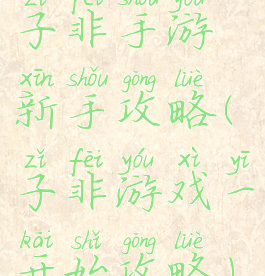 zǐ fēi shǒu yóu
子非手游
xīn shǒu gōng lüè
新手攻略(
zǐ fēi yóu xì yī
子非游戏一
kāi shǐ gōng lüè
开始攻略)